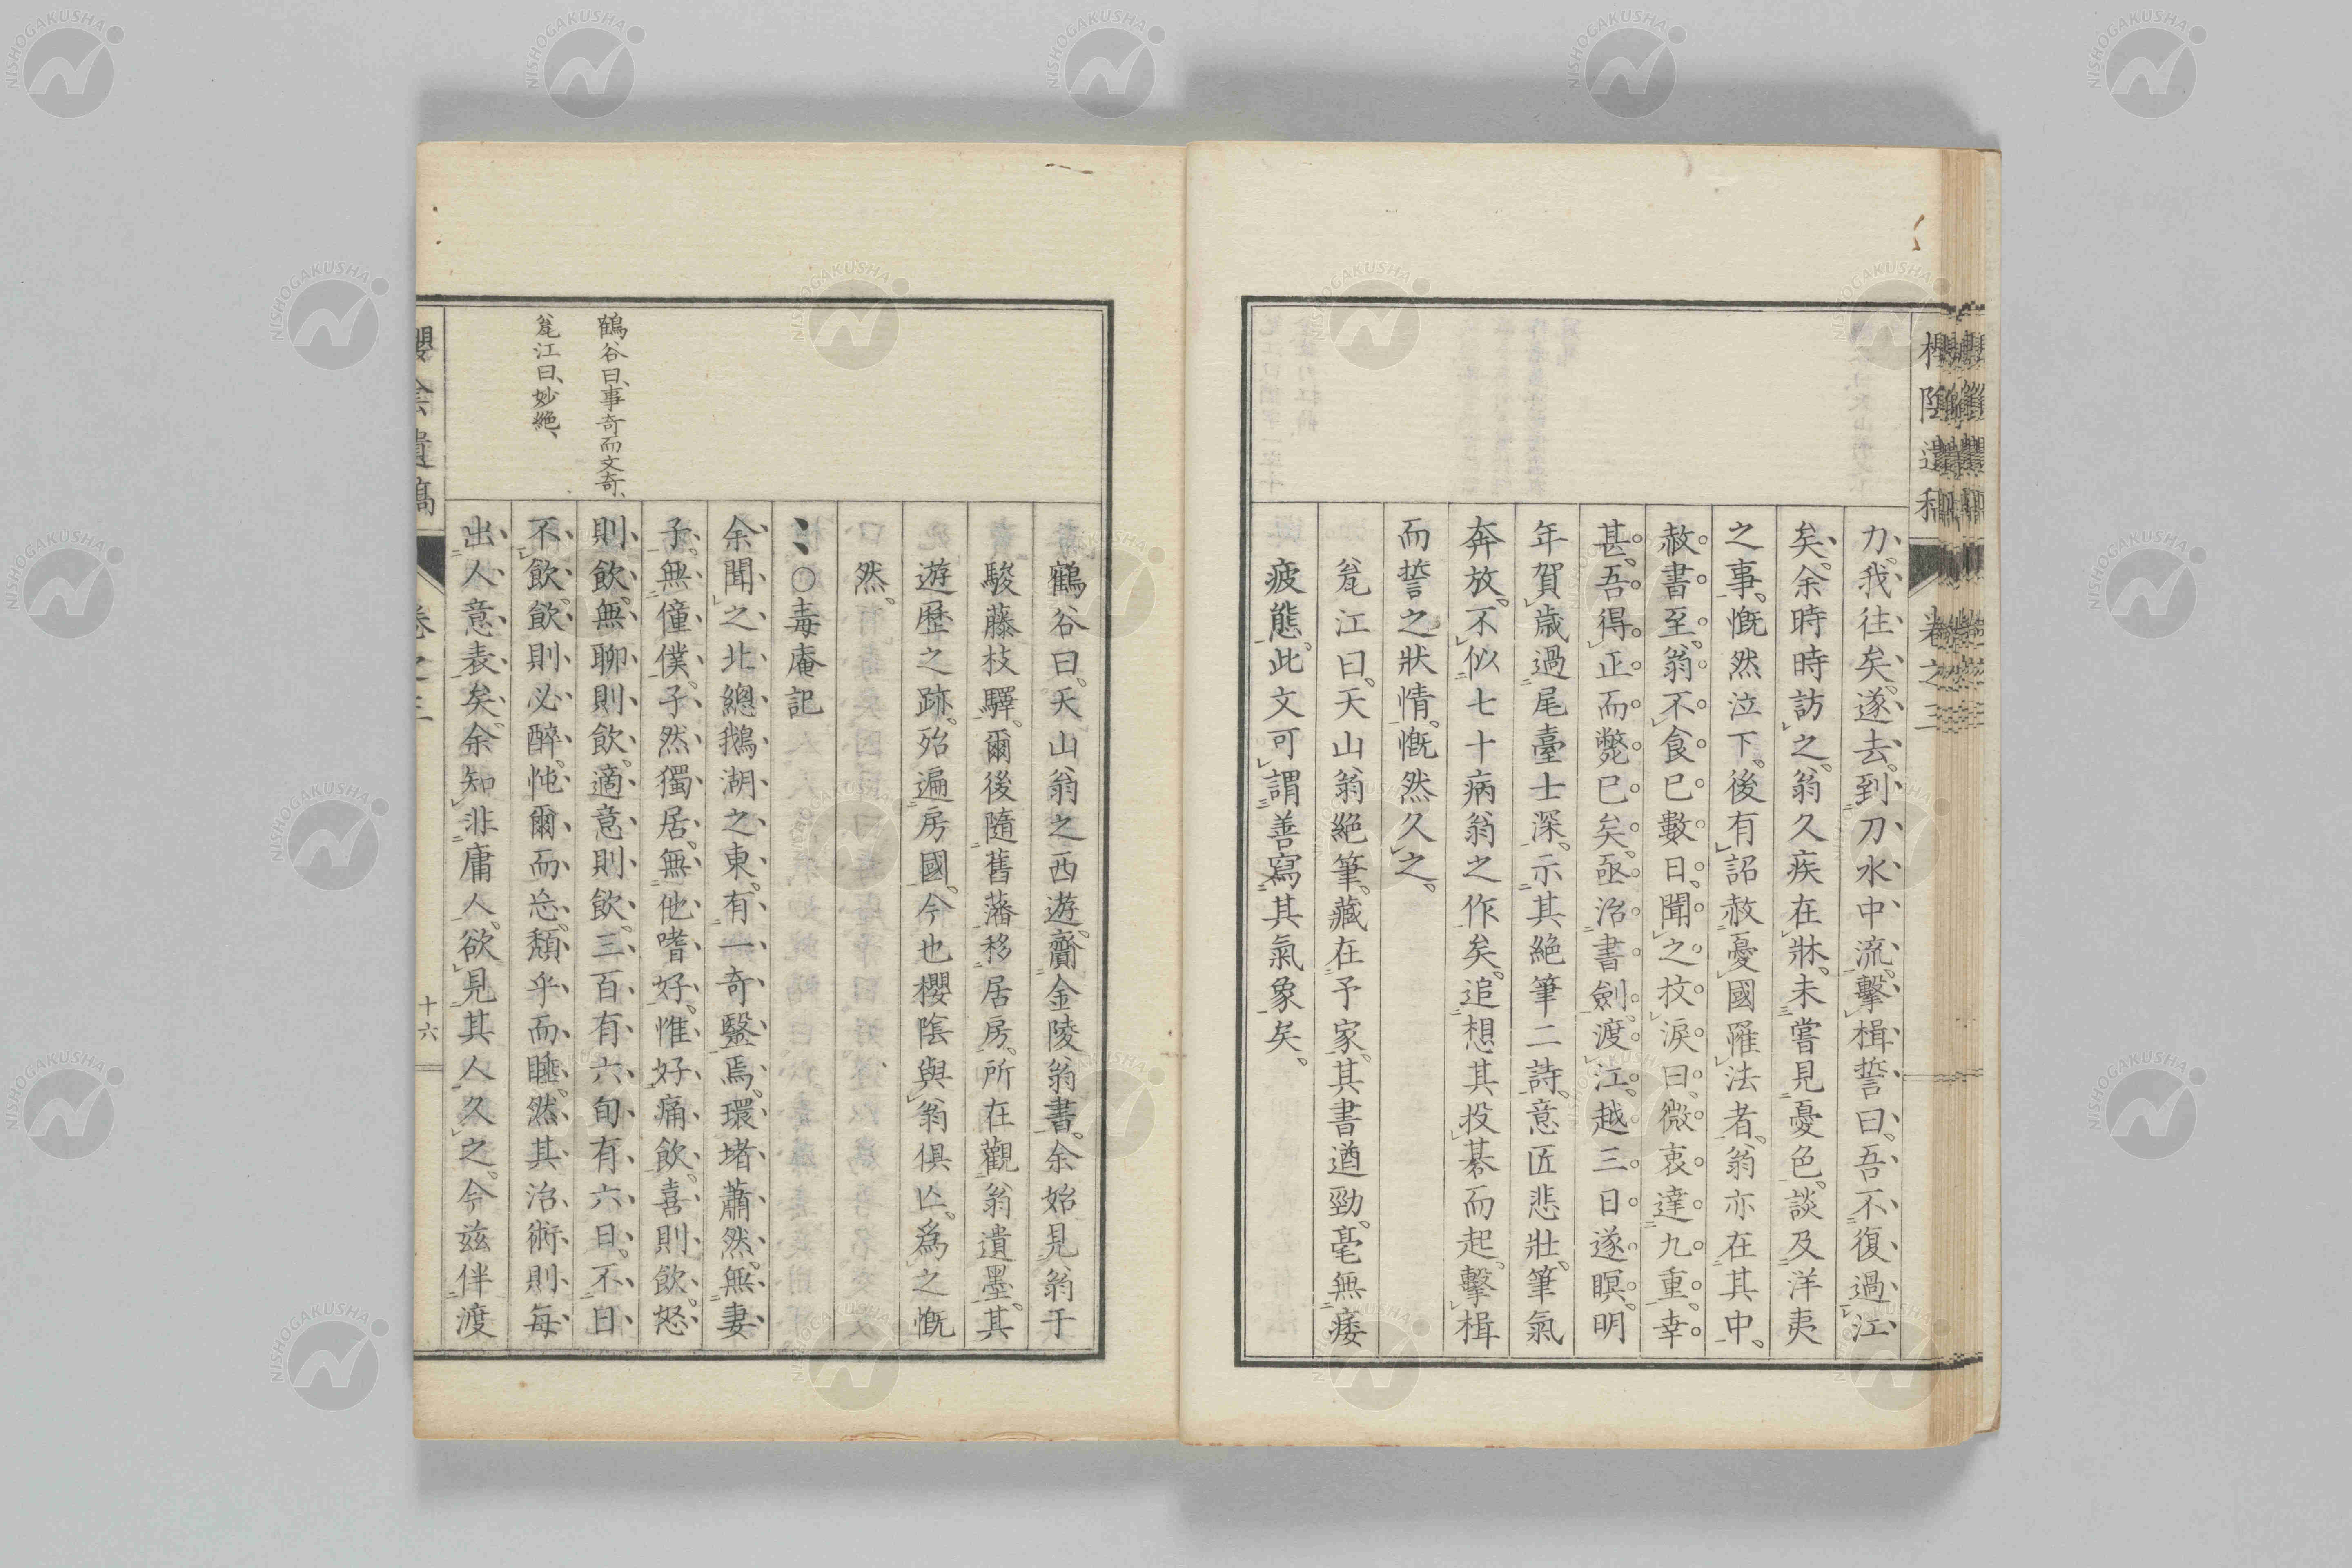 櫻陰遺稿
卷之三
力我往矣遂去到刀水中流擊楫誓曰吾不復過江
矣余時時訪之翁久疾在牀未嘗見憂色談及洋夷
之事慨然泣下後有詔赦憂國罹法者翁亦在其中
赦書至翁不食已數日聞之抆淚曰微衷達九重幸
甚吾得正而斃已矣亟治書劍渡江越三日遂瞑明
年賀歲過尾臺士深示其絕筆二詩意匠悲壯筆氣
奔放不似七十病翁之作矣追想其投碁而起擊楫
而誓之狀情慨然久之
瓮江曰天山翁絕筆藏在予家其書遒勁毫無痿
疲態此文可謂善寫其氣象矣
鶴谷曰天山翁之西遊齎金陵翁書余始見翁于
駿藤枝驛爾後隨舊藩移居房所在觀翁遺墨其
遊歷之跡殆遍房國今也櫻陰與翁俱亾爲之慨
然
○毒庵記
余聞之北總鵝湖之東有一奇毉焉環堵蕭然無妻
子無僮僕孑然獨居無他嗜好惟好痛飲喜則飲怒
則飲無聊則飲適意則飲三百有六旬有六日不日
不飲飲則必醉忳爾而忘頹乎而睡然其治術則每
出人意表矣余知非庸人欲見其人久之今玆伴渡
鶴谷曰事奇而文奇
瓮江曰妙絕
櫻陰遺稿
卷之三
十六
NISHOGAKUSHA